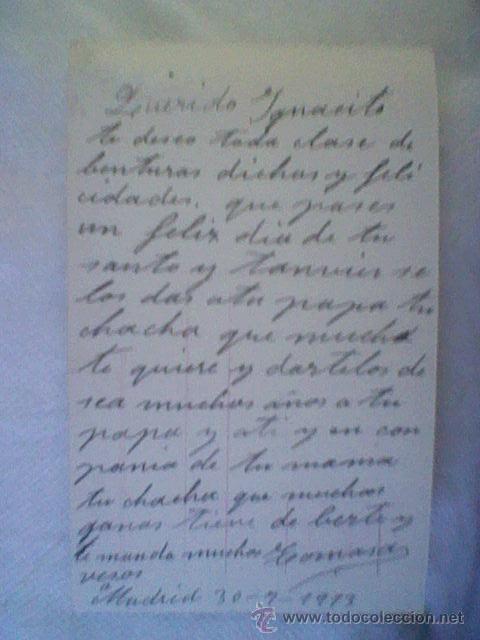 Querido Ygnacito
te deseo toda clase de
benturas dichas y feli
cidades. que pases
un feliz dia de tu
santo y tanvien se
los das a tu papa tu
chacha que mucho
te quiere y dartelos de
sea muchos años a tu
papa y a ti y en con
pania de tu mama
tu chacha que muchas
ganas tiene de berte y
te manda muchos Tomasa
vesos
Madrid 30-7-1913
www.todocoleccion.net